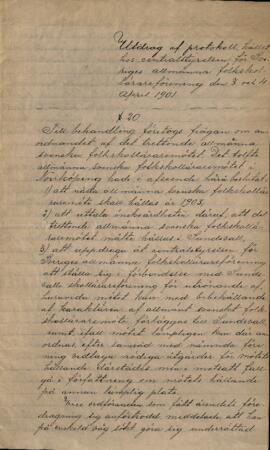 Utdrag af protokoll, hållet
hos centralstyrelsen för Sve-
riges allmänna folkskol-
lärareförening den 3 och 4
April 1901.
§ 20
Till behandling företogs frågan om an-
ordnandet af det trettonde allmänna
svenska folkskollärarmötet. Det tolfte
allmänna svenska folkskollärarmötet i
Norrköping hade i afseende härå beslutat:
1) att nästa allmänna svenska folkskollä-
raremöte skall hållas år 1903;
2) att uttala önskvärdheten däraf, att det
trettonde allmänna svenska folkskollä-
raremötet måtte hållas i Sundsvall;
3) att uppdraga åt centralstyrelsen för
Sveriges allmänna folkskollärareförening
att ställa sig i förbindelse med Sunds-
valls skollärareförening för utrönande af,
huruvida mötet kan med bibehållande
af karaktären af allmänt svenskt folk-
skollararemöte förläggas till Sundsvall
samt ifall mötet lämpligen kan där an-
ordnas, efter samråd med nämnda före-
ning vidtaga nödiga åtgärder för mötets
hållande därstädes men i motsatt fall
gå i författning om mötets hållande
på annan lämplig plats.
Herr ordföranden, som fått ärendets före-
dragning sig anförtrodd, meddelade, att han
på enskild väg sökt göra sig underrättad